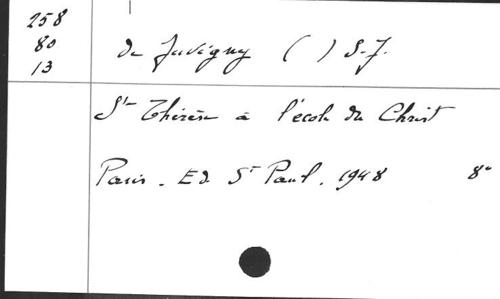 258
80
13
de Juvigny ( ) S.J.
Ste Thérèse à l'école du Christ
Paris. Ed. St Paul. 1948 8°